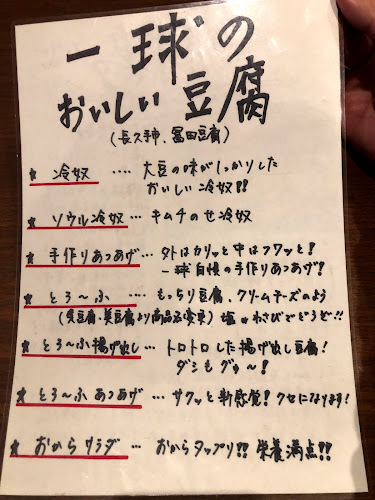 一球の
おいしい豆腐
(長久手、冨田豆腐)
★ 冷奴 …. 大豆の味がしっかりした
おいしい冷奴!!
★ ソウル冷奴 … キムチのせ冷奴
★ 手作りあつあげ… 外はカリッと中はフワッと!
一球自慢の手作りあつあげ!
★ とろ〜ふ … もっちり豆腐、クリームチーズのよう
(豆腐・美豆腐より商品名変更) 塩orわさびでどうぞ!!
★ とろ〜ふ揚げ出し… トロトロした揚げ出し豆腐!
ダシもグゥ〜!
★ とろ〜ふ あつあげ … サクッと新感覚! クセになります!
★ おからサラダ … おからタップリ!! 栄養満点!!